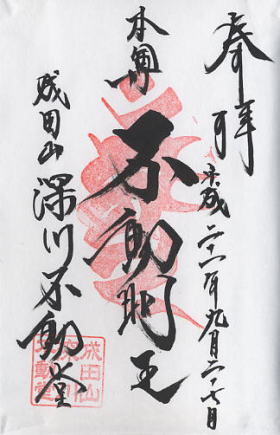 奉拝
平成二十一年九月二十七日
本尊
不動明王
成田山深川不動堂
成田山
深川
不動堂